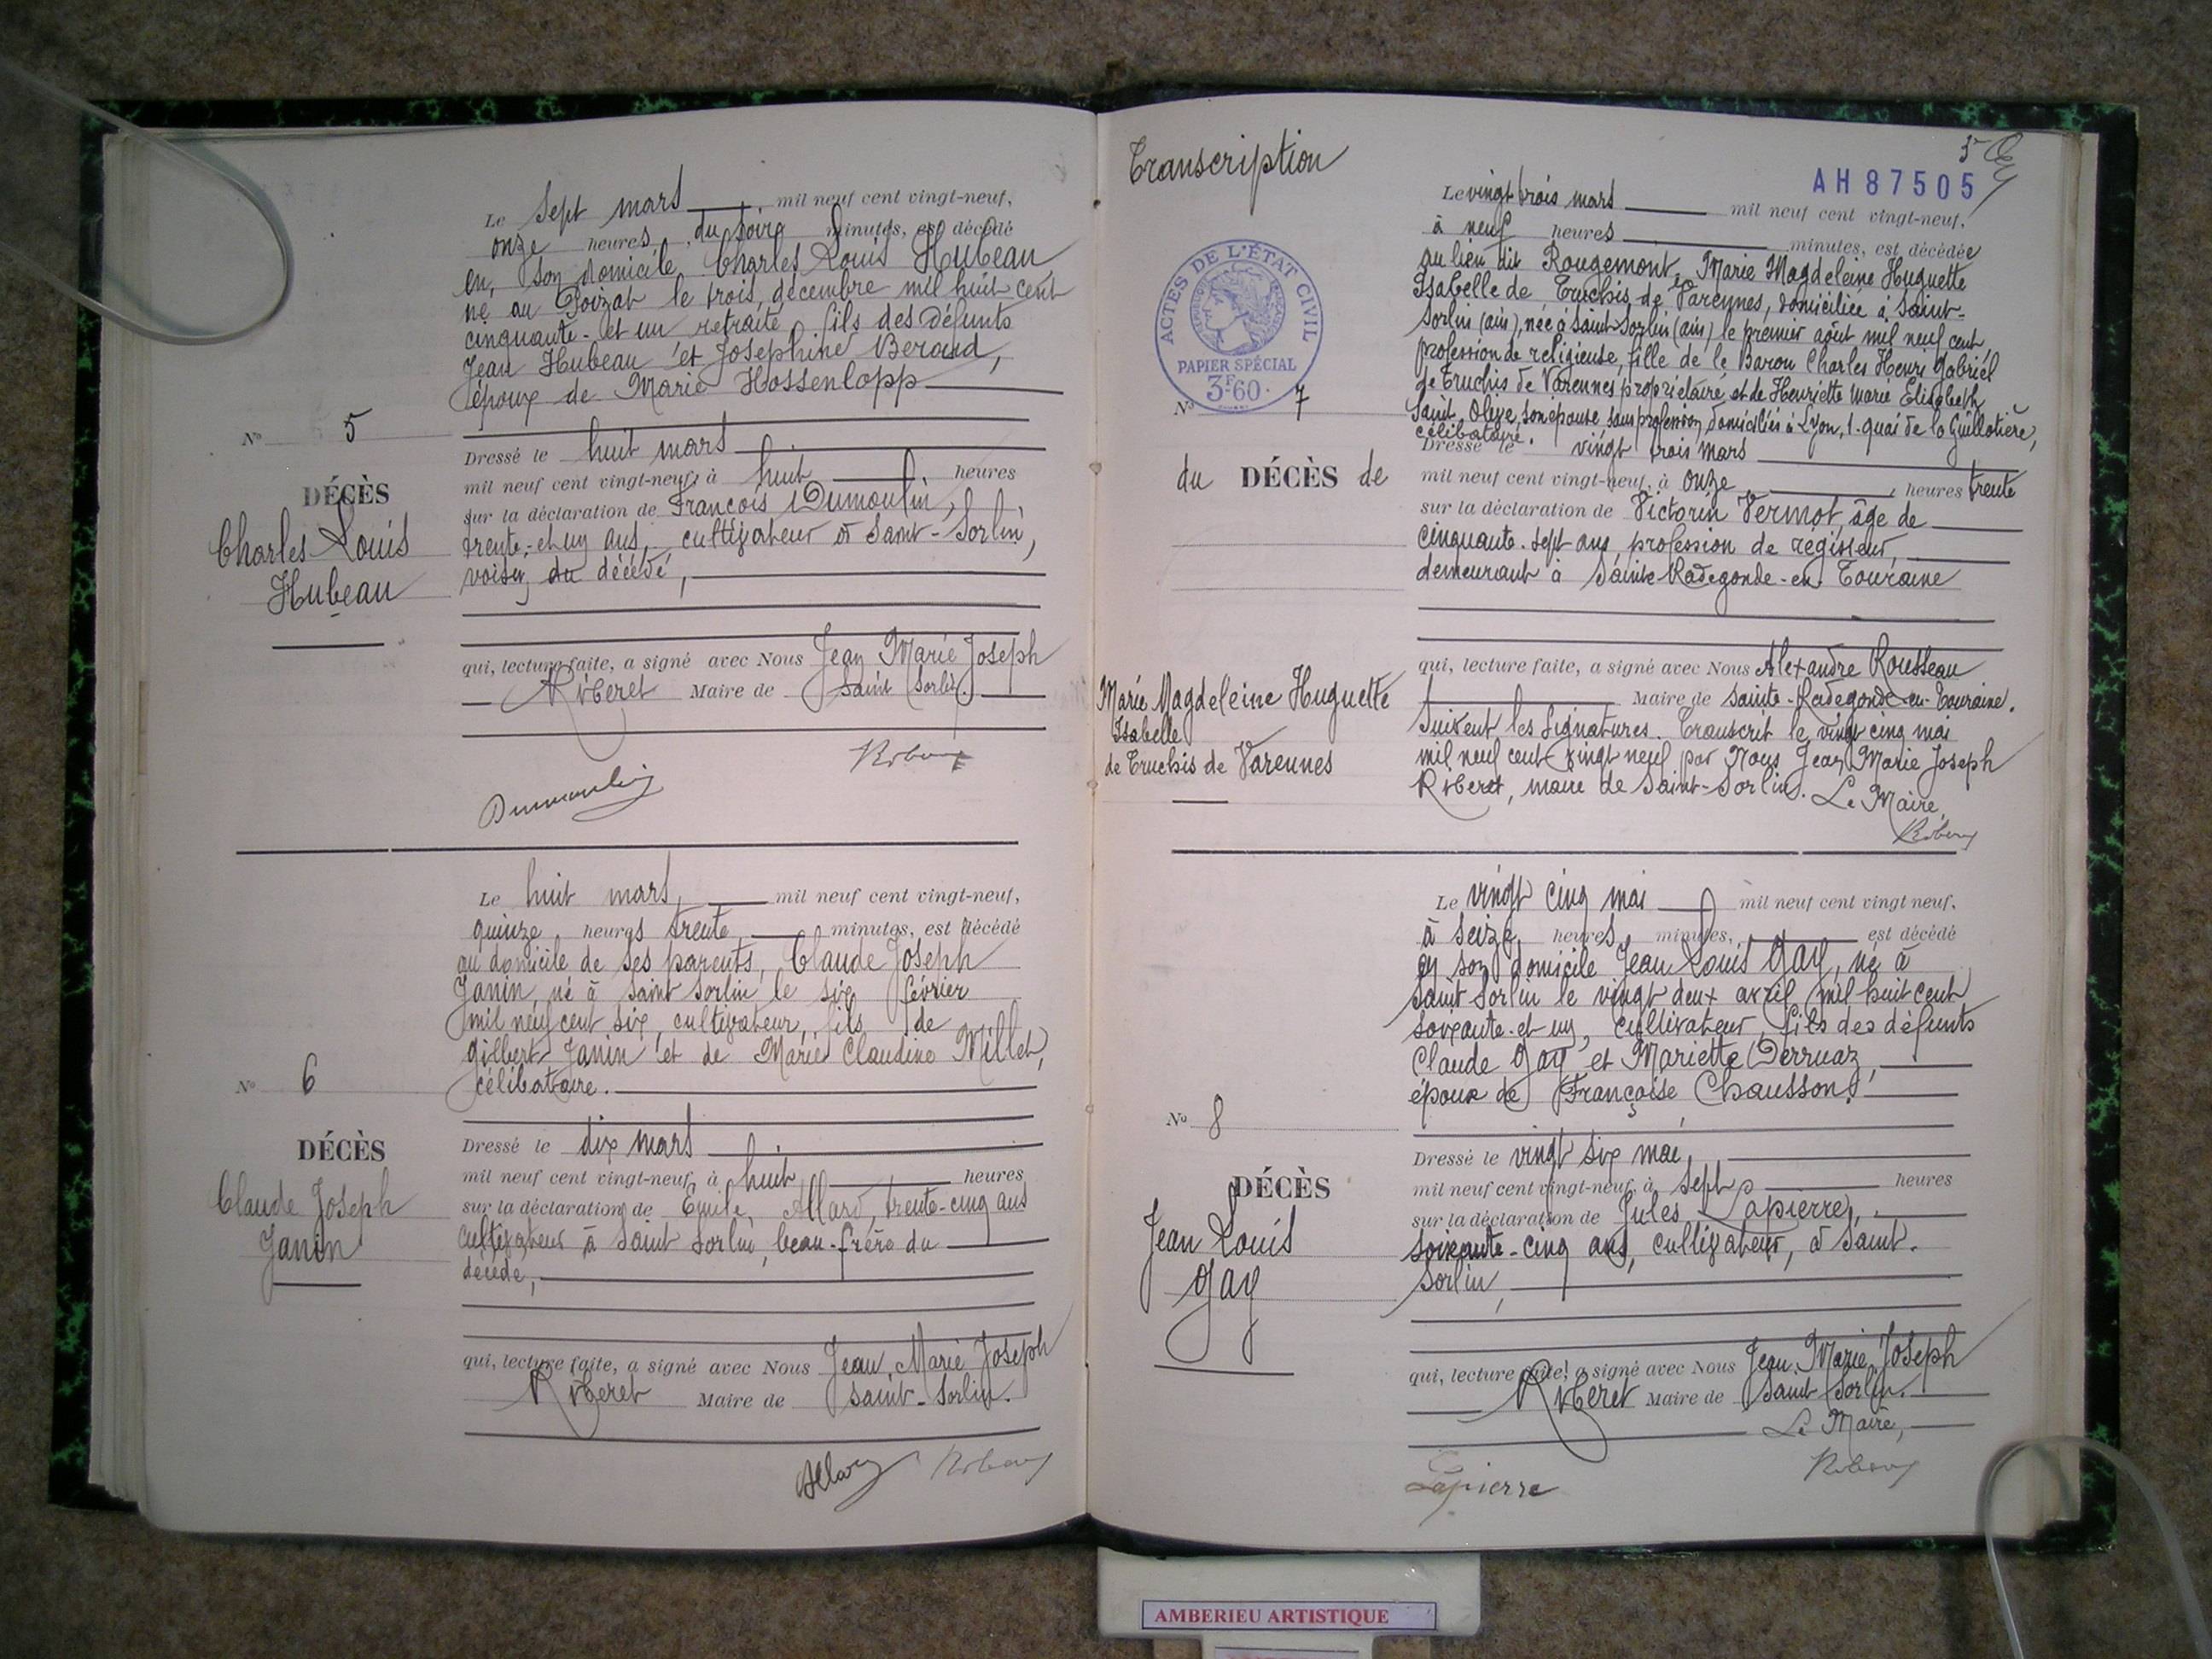 Le Sept mars mil neuf cent vingt-neuf,
onze heures, du soir minutes, est décédé
en, son domicile Charles Louis Hubeau
né au Poizat le trois, décembre mil huit cent
cinquante-et un retraité, fils des défunts
Jean Hubeau et Josephine Beraud,
époux de Marie Hossenlopp
No 5
DÉCÈS
Charles Louis
Hubeau
Dressé le huit mars
mil neuf cent vingt-neuf, à huit heures
sur la déclaration de François Dumoulin,
trente-et un ans, cultivateur à Saint-Sorlin,
voisin du décédé,
qui, lecture faite, a signé avec Nous Jean Marie Joseph
Riberet Maire de Saint Sorlin.
Dumoulin
Le huit mars, mil neuf cent vingt-neuf,
quinze heures trente minutes, est décédé
au domicile de ses parents, Claude Joseph
Janin, né à Saint Sorlin le six février
mil neuf cent six, cultivateur, fils de
Gilbert Janin et de Marie Claudine Millet,
célibataire.
No 6
DÉCÈS
Claude Joseph
Janin
Dressé le dix mars
mil neuf cent vingt-neuf, à huit heures
sur la déclaration de Emile Allard, trente-cinq ans
cultivateur à Saint Sorlin, beau-frère du
décédé,
qui, lecture faite, a signé avec Nous Jean Marie Joseph
Riberet Maire de Saint-Sorlin.
Transcription
AH87505
Le vingt trois mars mil neuf cent vingt-neuf,
à neuf heures minutes, est décédée
au lieu dit Rougemont, Marie Magdeleine Huguette
Isabelle de Truchis de Varennes, domiciliée à Saint-
Sorlin (ain), née à Saint Sorlin (ain) le premier août mil neuf cent,
profession de religieuse, fille de le Baron Charles Henri Gabriel
de Truchis de Varennes propriétaire et de Henriette Marie Elisabeth
Saint Olive, son épouse sans profession, domiciliés à Lyon, 1. quai de la Guillotière,
célibataire.
ACTES DE L'ÉTAT CIVIL
PAPIER SPÉCIAL
3F60
No 7
du DÉCÈS de
Marie Magdeleine Huguette
Isabelle
de Truchis de Varennes
Dressé le vingt trois mars
mil neuf cent vingt-neuf, à onze heures trente
sur la déclaration de Victorin Vermot, âge de
cinquante-sept ans, profession de régisseur,
demeurant à Sainte Radegonde-en-Touraine
qui, lecture faite, a signé avec Nous Alexandre Rousseau
Maire de Sainte-Radegonde-en-Touraine.
Suivent les signatures. Transcrit le vingt cinq mai
mil neuf cent vingt neuf par Nous Jean Marie Joseph
Riberet, maire de Saint-Sorlin. Le Maire,
Le vingt cinq mai mil neuf cent vingt neuf,
à seize heures, minutes, est décédé
en son domicile Jean Louis Gay, né à
Saint Sorlin le vingt deux avril mil huit cent
soixante-et un, cultivateur, fils des défunts
Claude Gay et Mariette Derruaz,
époux de Françoise Chausson.
No 8
DÉCÈS
Jean Louis
Gay
Dressé le vingt six mai,
mil neuf cent vingt-neuf, à sept heures
sur la déclaration de Jules Lapierre,
soixante-cinq ans, cultivateur, à Saint-
Sorlin,
qui, lecture faite, a signé avec Nous Jean Marie Joseph
Riberet Maire de Saint Sorlin.
Le Maire,
Lapierre
AMBERIEU ARTISTIQUE